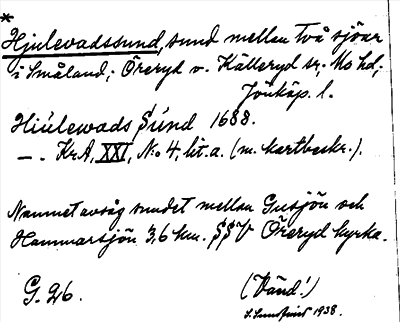 *
Hjulevadssund, sund mellan två sjöar
i Småland; Öreryd o. Källeryd sr, Mo hd,
Jönköp. l.
Hiúlewads Súnd 1688.
—. KrA, XXI, No 4, lit. a. (m. kartbeskr.).
Namnet avsåg sundet mellan Gusjön och
Hammarsjön 3,6 km. SSV Öreryd kyrka.
G. 26.
(Vänd!)
1938.